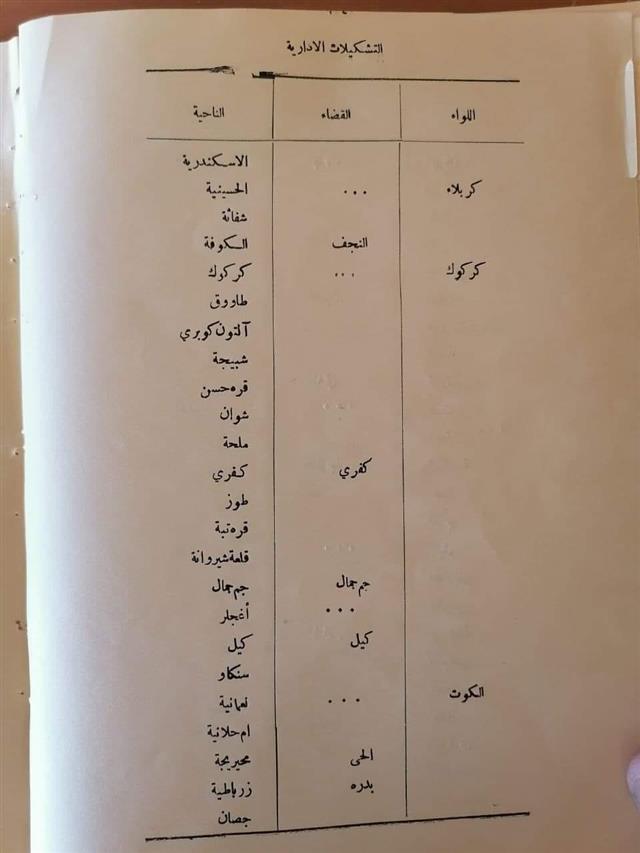 التشكيلات الادارية
اللواء القضاء الناحية
الاسكندرية
كربلاء ... الحسينية
شفاثة
النجف الكوفة
كركوك ... كركوك
طاووق
آلتون كوبري
شبيجة
قره حسن
شوان
ملحة
كفري كفري
طوز
قره تبة
قلعة شيروانة
جم جمال جم جمال
... أغجلر
كيل كيل
سنكاو
الكوت ... نعمانية
ام حلانية
الحى محيريجة
بدره زرباطية
جصان